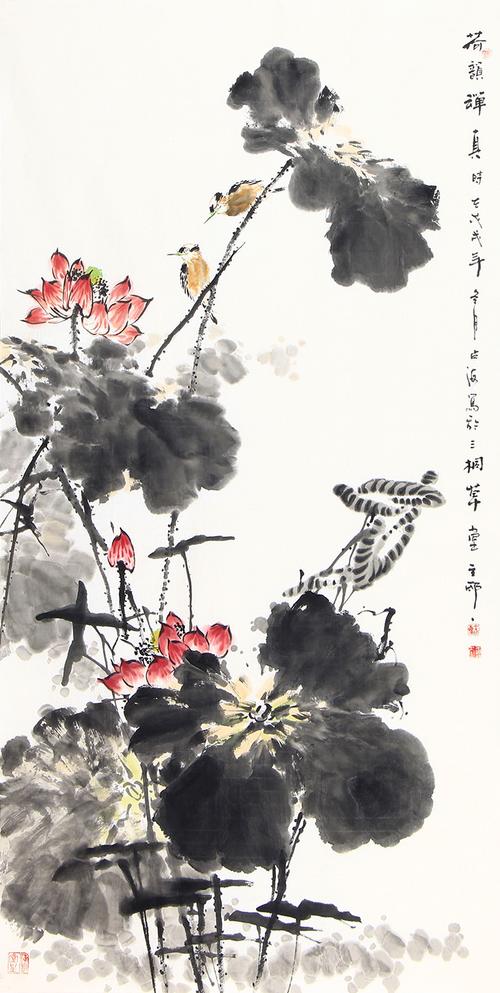 荷韻禪真時在戊戌年冬月海寫於三桐草堂